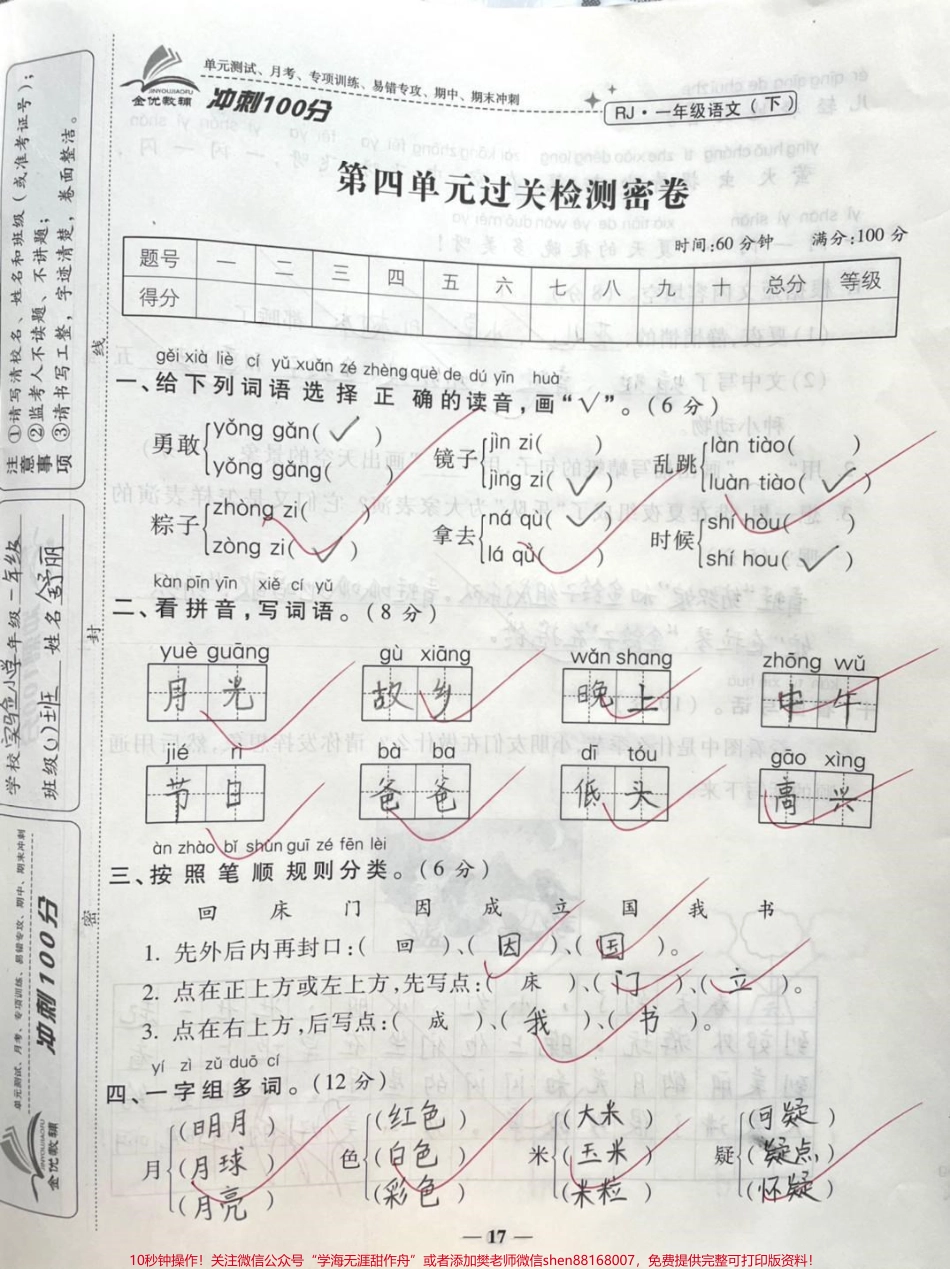 单元测试、月考、专项训练、易错专攻、期中、期末冲刺
JINYOUJIAOFU
金优教辅
冲刺100分
RJ·一年级语文(下)
第四单元过关检测密卷
时间:60分钟 满分:100分
题号 一 二 三 四 五 六 七 八 九 十 总分 等级
得分
gěi xià liè cí yǔ xuǎn zé zhèng què de dú yīn huà
一、给下列词语选择正确的读音,画“√”。(6分)
勇敢 yǒng gǎn(√) 镜子 jìn zi( ) 乱跳 làn tiào( )
yǒng gǎng( ) jìng zi(√) luàn tiào(√)
粽子 zhòng zi( ) 拿去 ná qù(√) 时候 shí hòu( )
zòng zi(√) lá qù( ) shí hou(√)
kàn pīn yīn xiě cí yǔ
二、看拼音,写词语。(8分)
yuè guāng gù xiāng wǎn shang zhōng wǔ
月光 故乡 晚上 中午
jié rì bà ba dī tóu gāo xìng
节日 爸爸 低头 高兴
àn zhào bǐ shùn guī zé fēn lèi
三、按照笔顺规则分类。(6分)
回 床 门 因 成 立 国 我 书
1. 先外后内再封口:( 回 )、( 因 )、( 国 )。
2. 点在正上方或左上方,先写点:( 床 )、( 门 )、( 立 )。
3. 点在右上方,后写点:( 成 )、( 我 )、( 书 )。
yí zì zǔ duō cí
四、一字组多词。(12分)
月 (明月) 色 (红色) 米 (大米) 疑 (可疑)
(月球) (白色) (玉米) (疑点)
(月亮) (彩色) (米粒) (怀疑)
— 17 —
注意事项
①请写清校名、姓名和班级(或准考证号);
②监考人不读题、不讲题;
③请书写工整,字迹清楚,卷面整洁。
学校 实验小学 年级 一年级
班级 (1)班 姓名 舒丽
密 封 线
单元测试、月考、专项训练、易错专攻、期中、期末冲刺
冲刺100分
JINYOUJIAOFU
金优教辅
10秒钟操作!关注微信公众号“学海无涯甜作舟”或者添加樊老师微信shen88168007,免费提供完整可打印版资料!